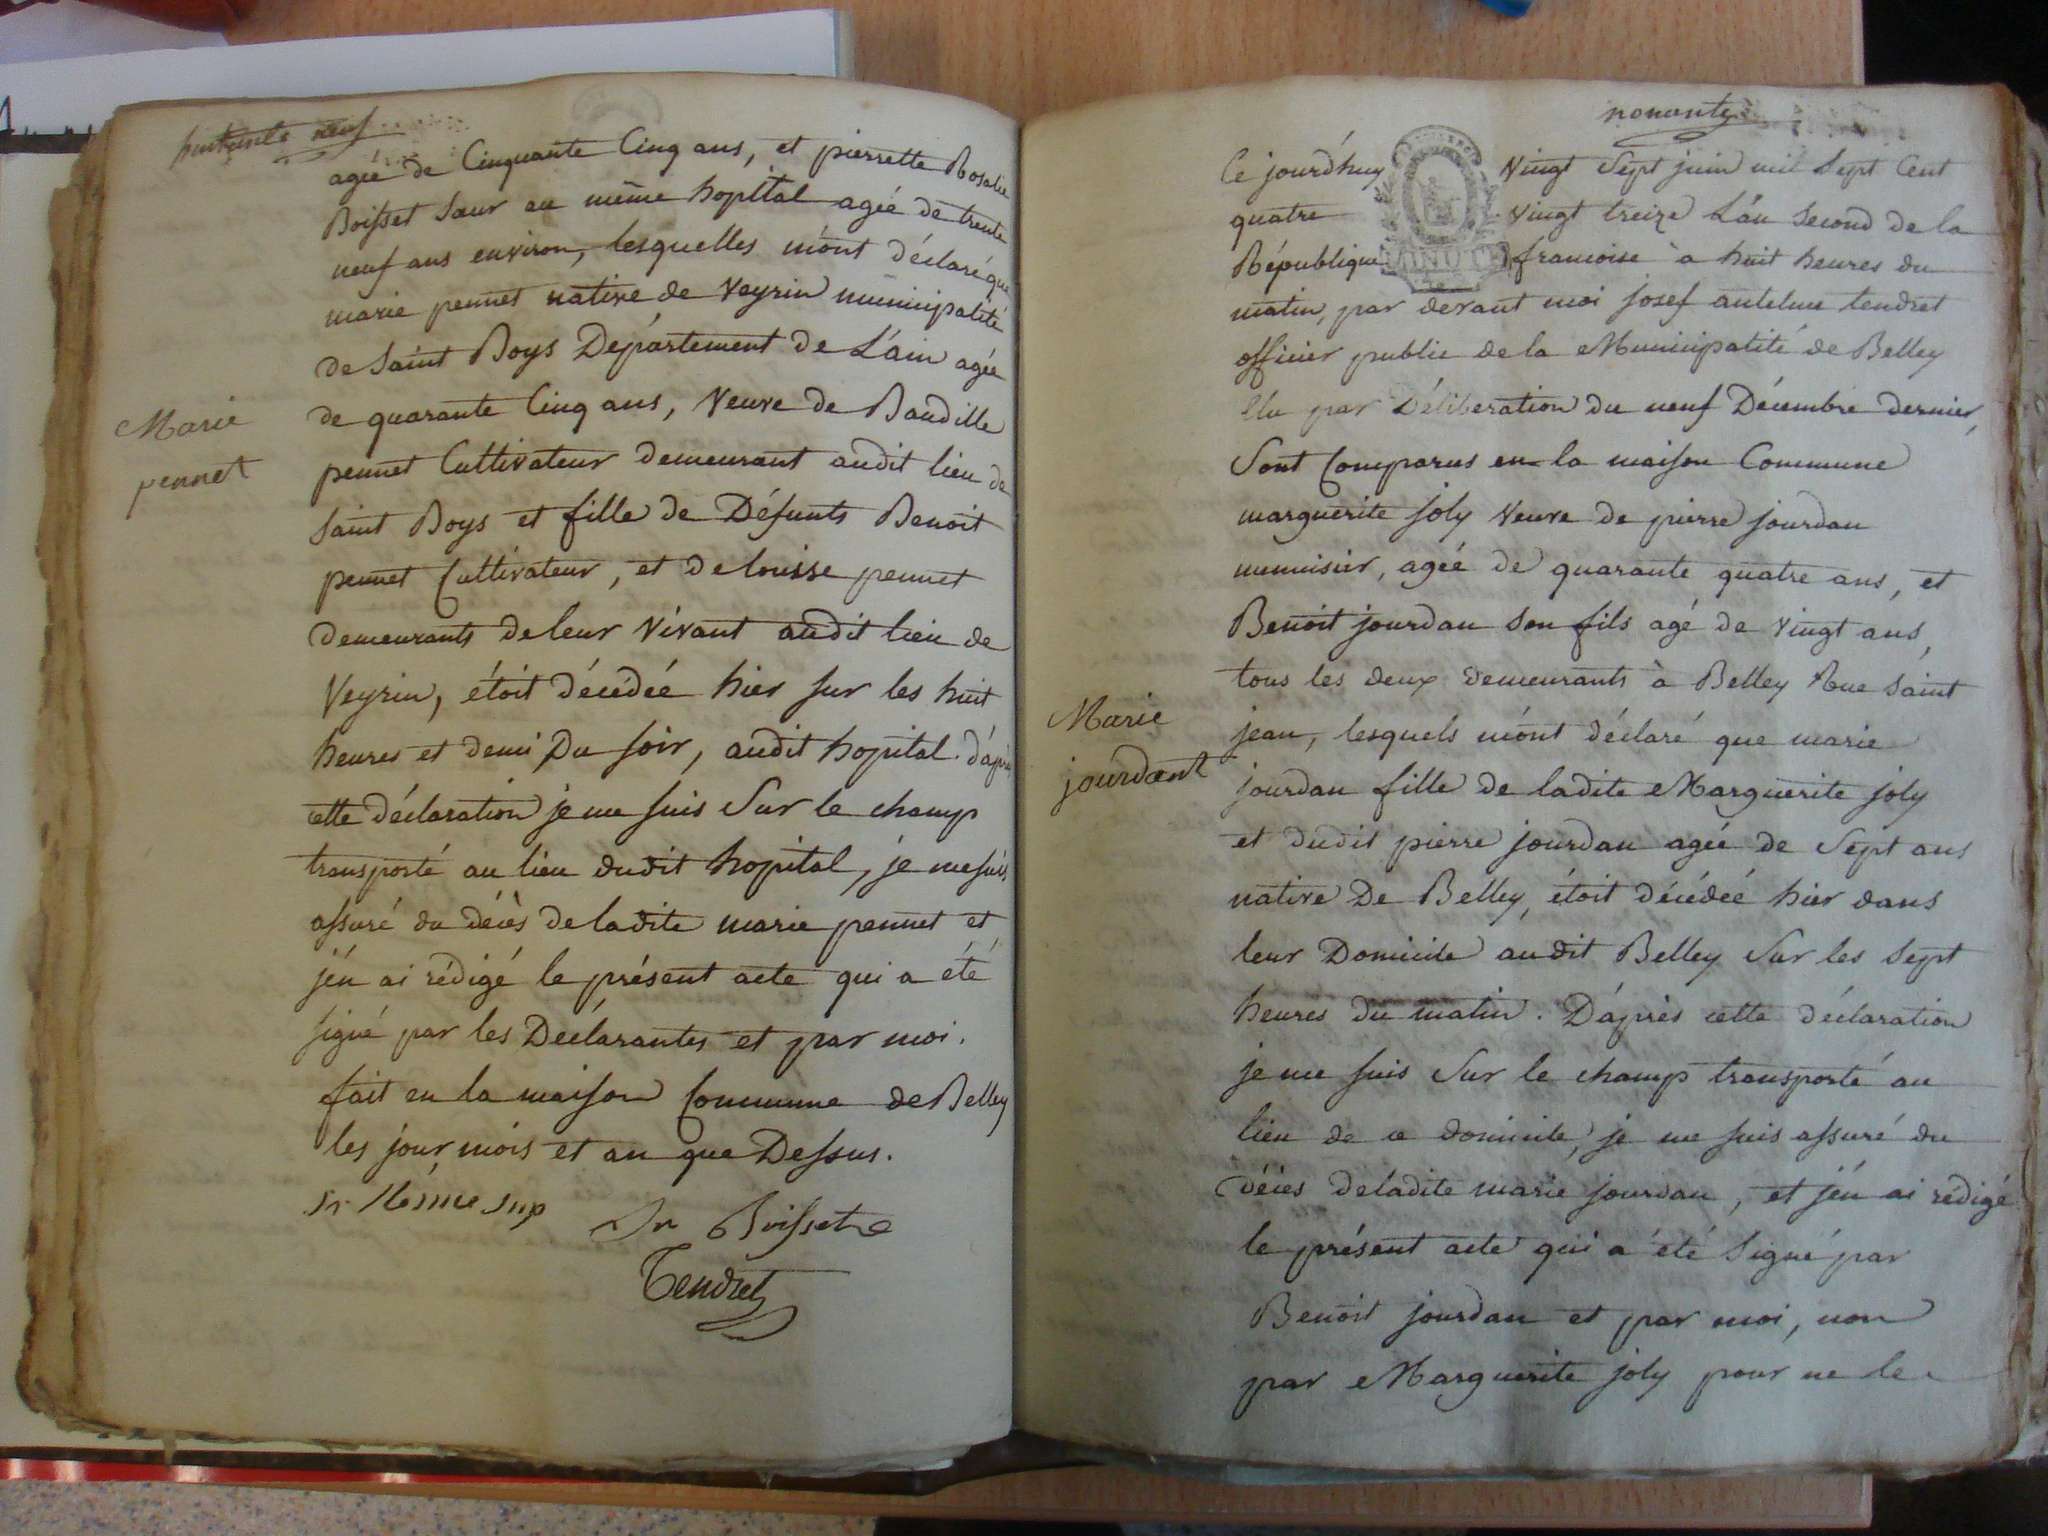 huitante neuf
agée de Cinquante Cinq ans, et pierrette Rosalie
Boisset Sœur au même hopital agée de trente
neuf ans environ, lesquelles m'ont déclaré que
marie pennet native de Veyrin municipalité
de Saint Boys Département de L'ain agée
de quarante Cinq ans, Veuve de Baudille
pennet Cultivateur demeurant audit lieu de
Saint Boys et fille de Défunts Benoit
pennet Cultivateur, et de louise pennet
demeurants de leur Vivant audit lieu de
Veyrin, étoit décédée hier sur les huit
heures et demi Du soir, audit hopital. d'après
cette déclaration je me suis Sur le champ
transporté au lieu dudit hopital, je me suis
assuré du décès de ladite marie pennet et
j'én ai rédigé le présent acte qui a été
signé par les Declarantes et par moi.
fait en la maison Commune de Belley
les jour, mois et an que Dessus.
Sr Boisset
Tendret
Marie
pennet
nonante
Ce jourd'huy Vingt Sept juin mil Sept Cent
quatre Vingt treize L'an Second de la
République francoise à huit heures du
matin, par devant moi Josef antelme tendret
officier public de la Municipalité de Belley
Elu par Déliberation du neuf Décembre dernier,
Sont Comparus en la maison Commune
marguerite joly Veuve de pierre jourdan
menuisier, agée de quarante quatre ans, et
Benoit jourdan Son fils agé de Vingt ans,
tous les deux demeurants à Belley Rue Saint
jean, lesquels m'ont déclaré que marie
jourdan fille de ladite Marguerite joly
et dudit pierre jourdan agée de Sept ans
native De Belley, étoit décédée hier dans
leur Domicile audit Belley Sur les Sept
heures du matin. D'après cette déclaration
je me suis Sur le champ transporté au
lieu de ce domicile, je me suis assuré du
décès de ladite marie jourdan, et j'én ai rédigé
le présent acte qui a été Signé par
Benoit jourdan et par moi, non
par Marguerite joly pour ne le
Marie
jourdant
MINUTE